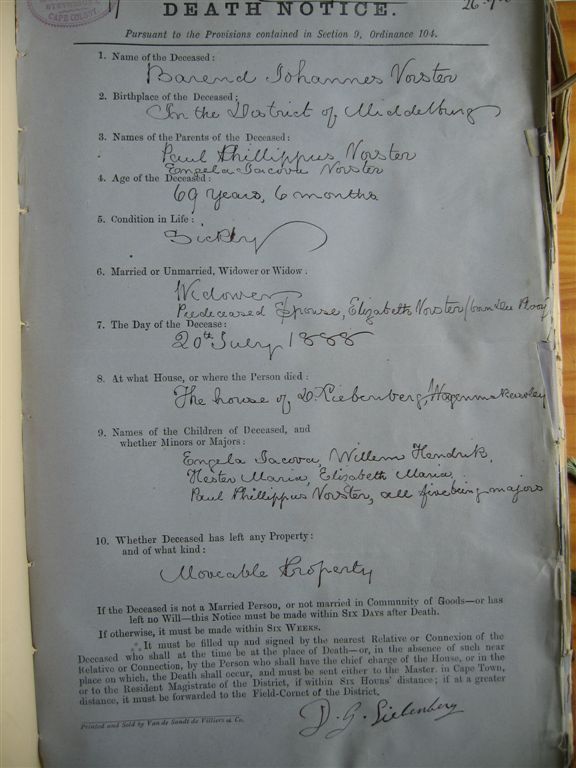 CAPE COLONY
DEATH NOTICE.
Pursuant to the Provisions contained in Section 9, Ordinance 104.
1. Name of the Deceased:
Barend Johannes Vorster
2. Birthplace of the Deceased:
In the District of Middelburg
3. Names of the Parents of the Deceased:
Paul Phillippus Vorster
Engela Jacova Vorster
4. Age of the Deceased:
69 years, 6 months
5. Condition in Life:
Sickly
6. Married or Unmarried, Widower or Widow:
Widower
Predeceased Spouse, Elizabeth Vorster
7. The Day of the Decease:
20th July 1888
8. At what House, or where the Person died:
The house of D. Liebenberg, Wagenmakersvley
9. Names of the Children of Deceased, and
whether Minors or Majors:
Engela Jacova, Willem Hendrik,
Hester Maria, Elizabeth Maria,
Paul Phillippus Vorster, all five being majors
10. Whether Deceased has left any Property:
and of what kind:
Moveable Property
If the Deceased is not a Married Person, or not married in Community of Goods—or has
left no Will—this Notice must be made within Six Days after Death.
If otherwise, it must be made within Six Weeks.
It must be filled up and signed by the nearest Relative or Connexion of the
Deceased who shall at the time be at the place of Death—or, in the absence of such near
Relative or Connection, by the Person who shall have the chief charge of the House, or in the
place on which, the Death shall occur, and must be sent either to the Master in Cape Town,
or to the Resident Magistrate of the District, if within Six Hours' distance; if at a greater
distance, it must be forwarded to the Field-Cornet of the District.
D. G. Liebenberg
Printed and Sold by Van de Sandt de Villiers & Co.